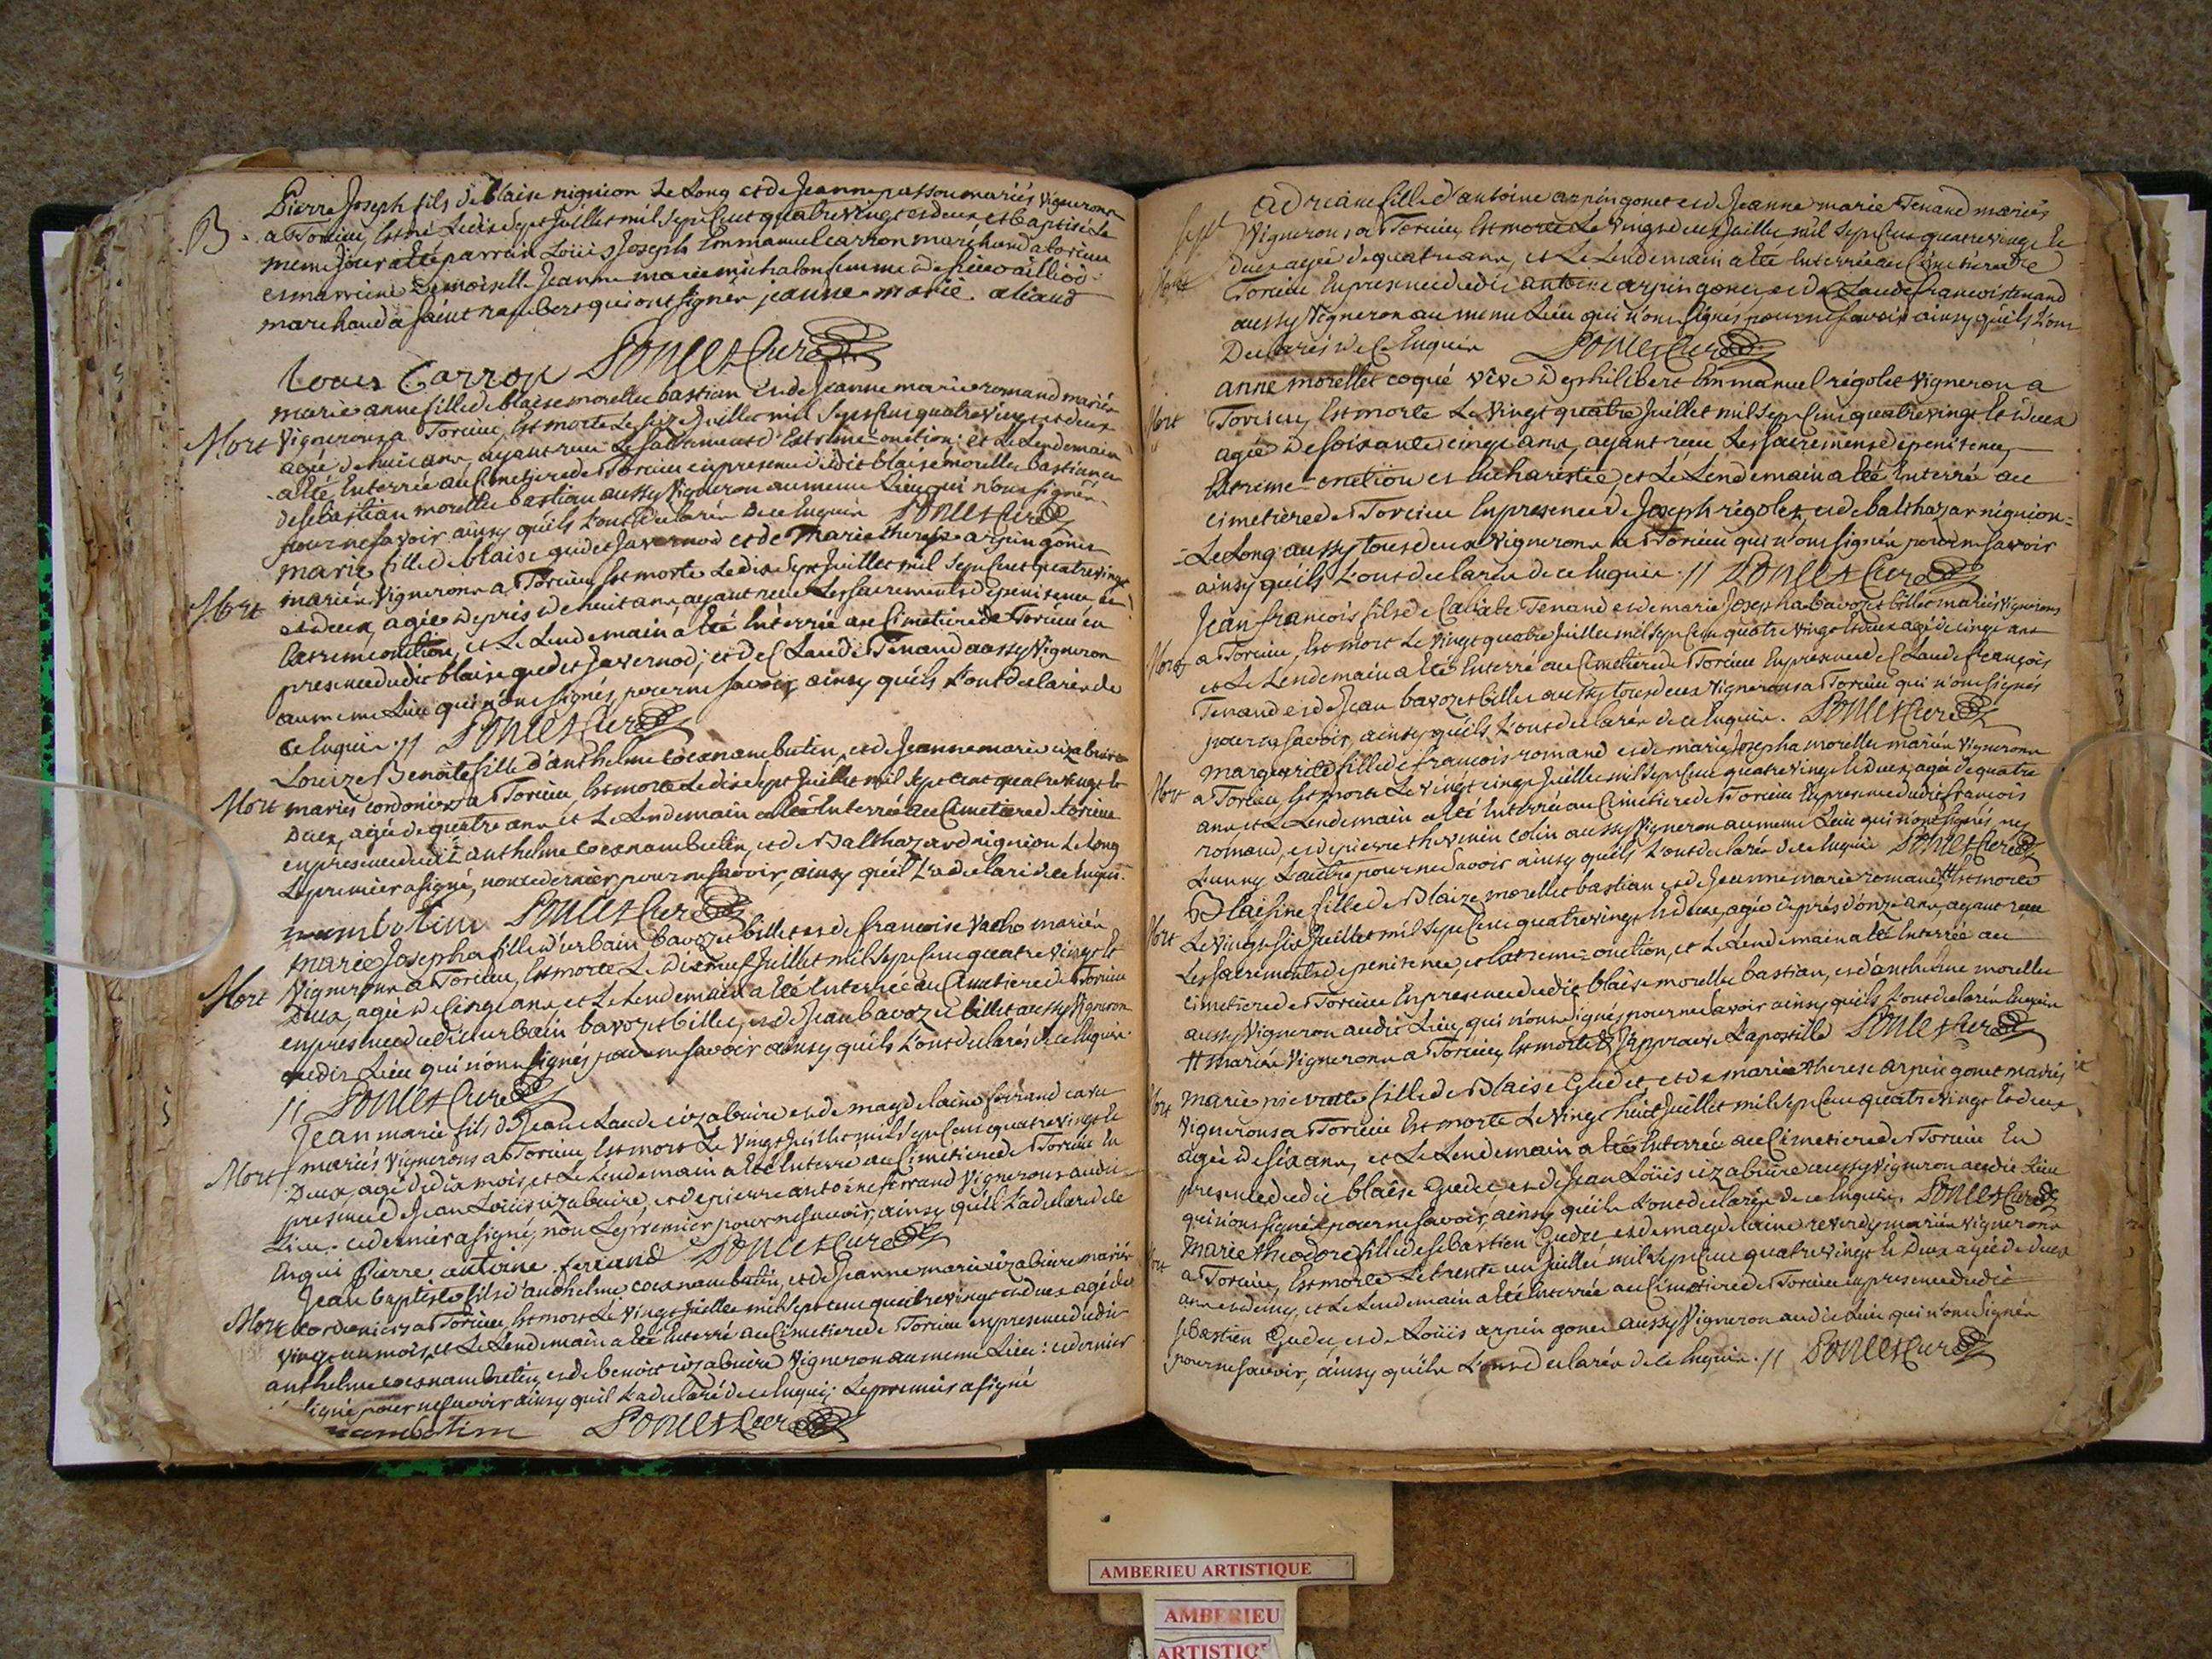 B. Pierre Joseph fils de blaise niguion Le Long et de Jeanne passou mariés vignerons
a Torcieu, Est né Le dix sept Juillet mil Sept Cent quatre vingt et deux et baptisé Le
meme jour a eté parrain Loüis Joseph Emmanuel carron marchand a torcieu
et marreine Demoiselle Jeanne marie michalon femme de sieur
marchand a saint rambert qui ont signés jeanne marie
Louis Carron Poncet Curé
marie anne fille de blaise morellet bastian et de Jeanne marie romand mariés
Mort vignerons a Torcieu, Est morte Le Juillet mil Sept Cent quatre vingt et deux
agée de huit ans, ayant recu Le sacrement d'Extreme-onction: et Le Lendemain
a eté Enterrée au Cimetiere de Torcieu en presence dudit blaise morellet bastian et
de sebastian morellet bastian aussy vigneron au meme Lieu qui n'ont signés
pour ne savoir ainsy quils L'ont declarés de ce Enquis Poncet Curé
marie fille de blaise guedet Javernod et de Marie therese arpin gonet
Mort mariés vignerons a Torcieu, Est morte Le dix Sept Juillet mil Sept Cent quatre vingt
et deux, agée de près de huit ans, ayant recu Les sacrements de penitence et
Extreme onction, et Le Lendemain a eté Enterrée au Cimetiere de Torcieu en
presence dudit blaise guedet Javernod, et de Claude Tenand aussy vigneron
au meme Lieu qui n'ont signés, pour ne savoir, ainsy quils L'ont declarés de
ce Enquis // Poncet Curé
Louize Benoite fille d'anthelme cocx nambutin, et de Jeanne marie uzabuire
Mort mariés cordoniers a Torcieu, Est morte Le dix sept Juillet mil Sept Cent quatre vingt et
Deux, agée de quatre ans et Le Lendemain a eté Enterrée au Cimetiere de torcieu
en presence dudit anthelme cocx nambutin, et de Balthazard niguion Le Long
Le premier a signé, non ce dernier pour ne savoir, ainsy quil L'a declaré de ce Enquis
nambotin Poncet Curé
marie Josepha fille d'urbain bavozet billet et de francoise vacho mariés
Mort vignerons a Torcieu, Est morte Le Dixneuf Juillet mil Sept Cent quatre vingt Et
Deux, agée de Cinq ans et Le Lendemain a eté Enterrée au Cimetiere de Torcieu
en presence dudit urbain bavozet billet, et de Jean bavozet billet aussy vigneron
audit Lieu qui n'ont signés pour ne savoir ainsy quils L'ont declarés de ce Enquis
// Poncet Curé
Jean marie fils de Jean Claude uzabuire et de magdelaine ferrand
Mort mariés vignerons a Torcieu, Est mort Le Vingt Juillet mil Sept Cent quatre vingt Et
Deux, agé de dix mois, et Le Lendemain a eté Enterré au Cimetiere de Torcieu En
presence de Jean Loüis uzabuire, et de pierre antoine ferrand vignerons audit
Lieu, ce dernier a signé, non Le premier pour ne savoir, ainsy quil L'a declaré de ce
Enquis Pierre antoine ferrand Poncet Curé
Jean baptiste fils d'anthelme cocx nambutin, et de Jeanne marie uzabuire mariés
Mort cordoniers a Torcieu, Est mort Le vingt Juillet mil Sept Cent quatre vingt et deux agé de
vingt un mois, et Le Lendemain a eté Enterré au Cimetiere de Torcieu en presence dudit
anthelme cocx nambutin, et de benoit uzabuire vigneron au meme Lieu: ce dernier
signé pour ne savoir ainsy quil L'a declaré de ce Enquis, Le premier a signé
nambotin Poncet Curé
adriane fille d'antoine arpin gonet et de Jeanne marie Tenand mariés
vignerons a Torcieu, Est morte Le vingt deux Juillet mil Sept Cent quatre vingt Et
Mort deux agée de quatre ans, et Le Lendemain a eté Enterrée au Cimetiere de
Torcieu En presence dudit antoine arpin gonet et de Claude francois tenand
aussy vigneron au meme Lieu qui n'ont signés pour ne savoir ainsy quils L'ont
Declarés de Ce Enquis Poncet Curé
anne morellet coqué vêve de philibert Emmanuel régolet vigneron a
Mort Torcieu, Est morte Le vingt quatre Juillet mil Sept Cent quatre vingt Et Deux
agée de soixante cinq ans, ayant recu Les sacrements de penitence,
Extreme-onction et Eucharistie, et Le Lendemain a eté Enterrée au
cimetiere de Torcieu En presence de Joseph régolet, et de balthazar niguion=
=Le Long aussy tous deux vignerons a Torcieu qui n'ont signés pour ne savoir
ainsy quils L'ont declarés de ce Enquis. // Poncet Curé
Jean francois fils de Tenand et de marie Josepha bavozet billet mariés vignerons
Mort a Torcieu, Est mort Le vingt quatre Juillet mil Sept Cent quatre vingt Et deux agé de cinq ans
et Le Lendemain a eté Enterré au Cimetiere de Torcieu En presence de Claude francois
Tenand et de Jean bavozet billet aussy tous deux vignerons a Torcieu qui n'ont signés
pour ne savoir, ainsy quils L'ont declarés de ce Enquis. Poncet Curé
marguerite fille de francois romand et de marie Josepha morellet mariés vignerons
Mort a Torcieu Est morte Le vingt cinq Juillet mil Sept Cent quatre vingt Et Deux, agée de quatre
ans et Le Lendemain a eté Enterrée au Cimetiere de Torcieu En presence dudit francois
romand, et de pierre thevenin colin aussy vigneron au meme Lieu qui n'ont signés ny
L'un ny L'autre pour ne savoir ainsy quils L'ont declarés de ce Enquis Poncet Curé
Blaisine fille de Blaize morellet bastian et de Jeanne marie romand # Est morte
Mort Le vingt six Juillet mil Sept Cent quatre vingt Et deux, agée de près d'onze ans, ayant recu
Les sacrements de penitence, et Extreme-onction, et Le Lendemain a eté Enterrée au
cimetiere de Torcieu En presence dudit blaise morellet bastian, et d'anthelme morellet
aussy vigneron audit Lieu, qui n'ont signés pour ne savoir ainsy quils L'ont declarés Enquis
# mariés vignerons a Torcieu, Est morte & J'approuve L'apostille Poncet Curé
marie pierrette fille de Blaise Guedet et de marie therese arpin gonet mariés
Mort vignerons a Torcieu Est morte Le Vingt huit Juillet mil Sept Cent quatre Vingt Et deux
agée de six ans, et Le Lendemain a eté Enterrée au Cimetiere de Torcieu En
presence dudit blaise Guedet, et de Jean Loüis uzabuire aussy vigneron audit Lieu
qui n'ont signés pour ne savoir, ainsy quils L'ont declarés de ce Enquis. Poncet Curé
marie theodore fille de sebastien Guedet et de magdelaine reverdy mariés vignerons
Mort a Torcieu, Est morte Le trente un Juillet mil Sept Cent quatre vingt Et Deux agée de deux
ans et demy, et Le Lendemain a eté Enterrée au Cimetiere de Torcieu en presence dudit
sebastien Guedet, et de Loüis arpin gonet aussy vigneron audit Lieu qui n'ont signés
pour ne savoir, ainsy quils L'ont declarés de ce Enquis. // Poncet Curé
AMBERIEU ARTISTIQUE
AMBERIEU
ARTISTIQ